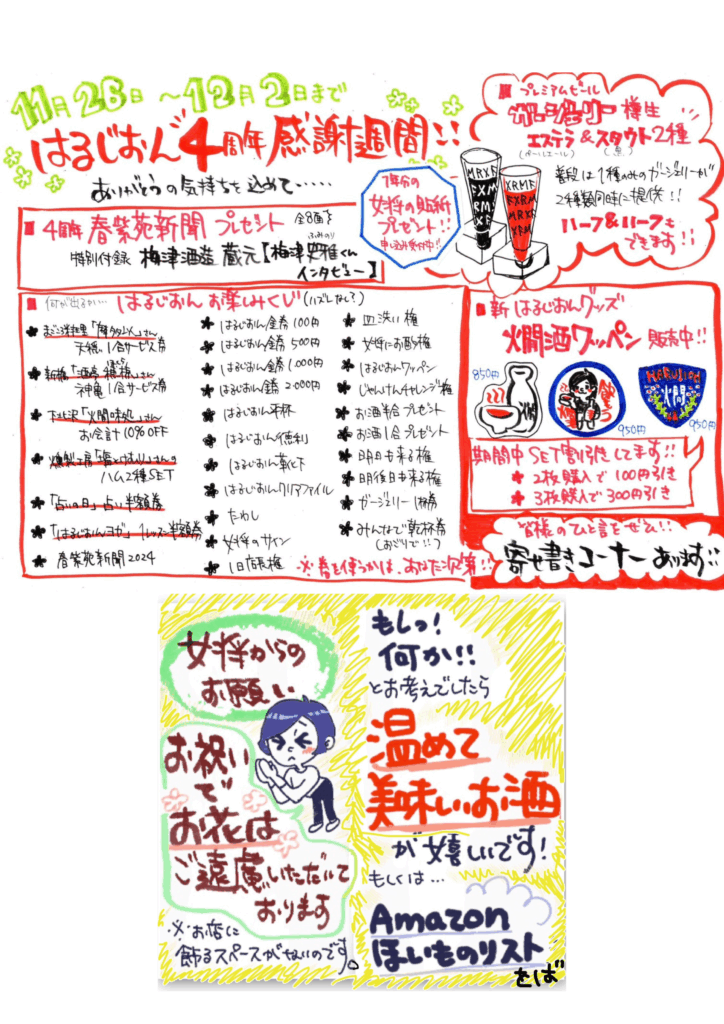 11月26日 ～12月2日まで
はるじおん4周年感謝週間!!
ありがとうの気持ちを込めて・・・・・
4周年 春紫苑新聞 プレゼント 全8面を
特別付録 梅津酒造 蔵元【梅津史雅くん
ふみのり
インタビュー】
1年分の
女将の貼紙
プレゼント!!
申し込み受付中!!
プレミアムビール
ガージェリー 樽生
エステラ&スタウト2種
(ペールエール) (黒)
普段は1種のみのガージェリーが
2種類同時に提供!!
ハーフ&ハーフも
できます!!
何が出るか… はるじおん お楽しみくじ(ハズレなし?)
天抜、1合サービス券
神亀1合サービス券
下北沢「燗味処」さん
お会計10%OFF
ハム2種SET
「占いの日」占い半額券
「はるじおんヨガ」1レッスン半額券
春紫苑新聞2024
はるじおん金券100円
はるじおん金券500円
はるじおん金券1,000円
はるじおん金券2,000円
はるじおん平杯
はるじおん徳利
はるじおん靴下
はるじおんクリアファイル
たわし
女将のサイン
1日店長権
皿洗い権
女将にお酌権
はるじおんワッペン
じゃんけんチャレンジ権
お酒半合プレゼント
お酒1合プレゼント
明日も来る権
明後日も来る権
ガージェリー1杯券
みんなで乾杯券
(おごりで!!)
※券を使うかは、あなた次第!!
新 はるじおんグッズ
燗酒ワッペン 販売中!!
850円
950円
HARUJION
燗
950円
期間中SET割引きしてます!!
2枚購入で100円引き
3枚購入で300円引き
皆様のひと言をぜひ!!
寄せ書きコーナーあります!!
女将からの
お願い
お祝い
で
お花は
ご遠慮いただいて
おります
※お店に
飾るスペースがないのです。
もしっ!
何か!!
とお考えでしたら
温めて
美味しいお酒
が嬉しいです!
もしくは…
Amazon
ほしいものリスト
をば